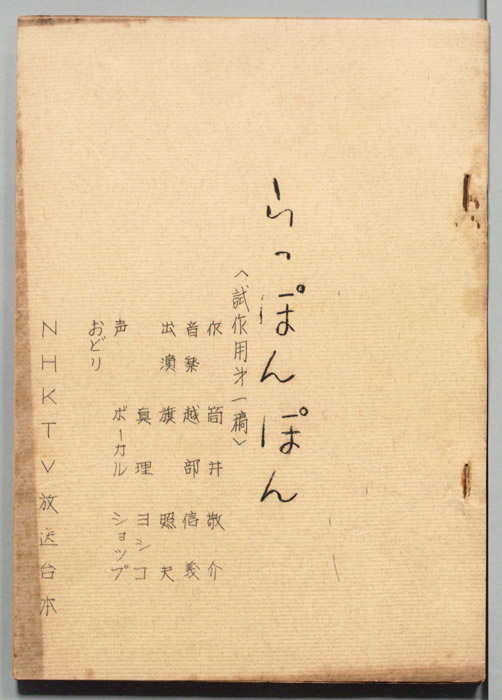 らっぽんぽん
〈試作用第一稿〉
作 筒井敬介
音楽 越部信義
出演 旗照夫
真理ヨシコ
声 ボーカルショップ
おどり
NHKTV放送台本